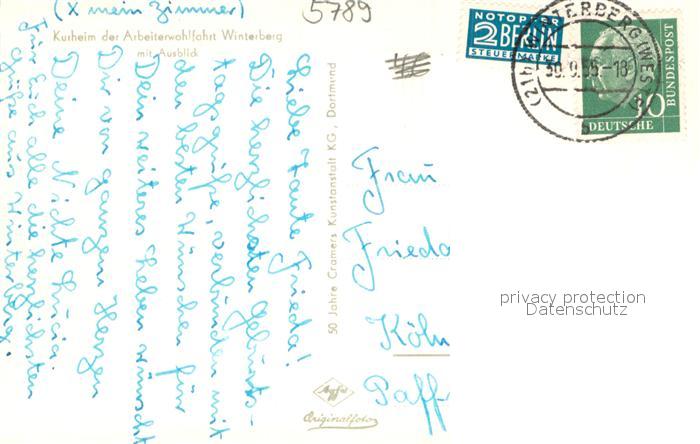 (X mein Zimmer)
5789
Kurheim der Arbeiterwohlfahrt Winterberg
mit Ausblick
Liebe Tante Frieda!
Die herzlichsten Geburts-
tagsgrüße, verbunden mit
den besten Wünschen für
Dein weiteres Leben wünscht
Dir von ganzem Herzen
Deine Nichte Lucia.
Für Euch alle die herzlichsten
Grüße aus Winterberg.
50 Jahre Cramers Kunstanstalt KG., Dortmund
Agfa
Originalfoto
NOTOPFER
2 BERLIN
STEUERMARKE
(21b) WINTERBERG (WESTF)
30.9.55.-18
b
10
DEUTSCHE
BUNDESPOST
Frau
Frieda
Köln
Paff-
privacy protection
Datenschutz